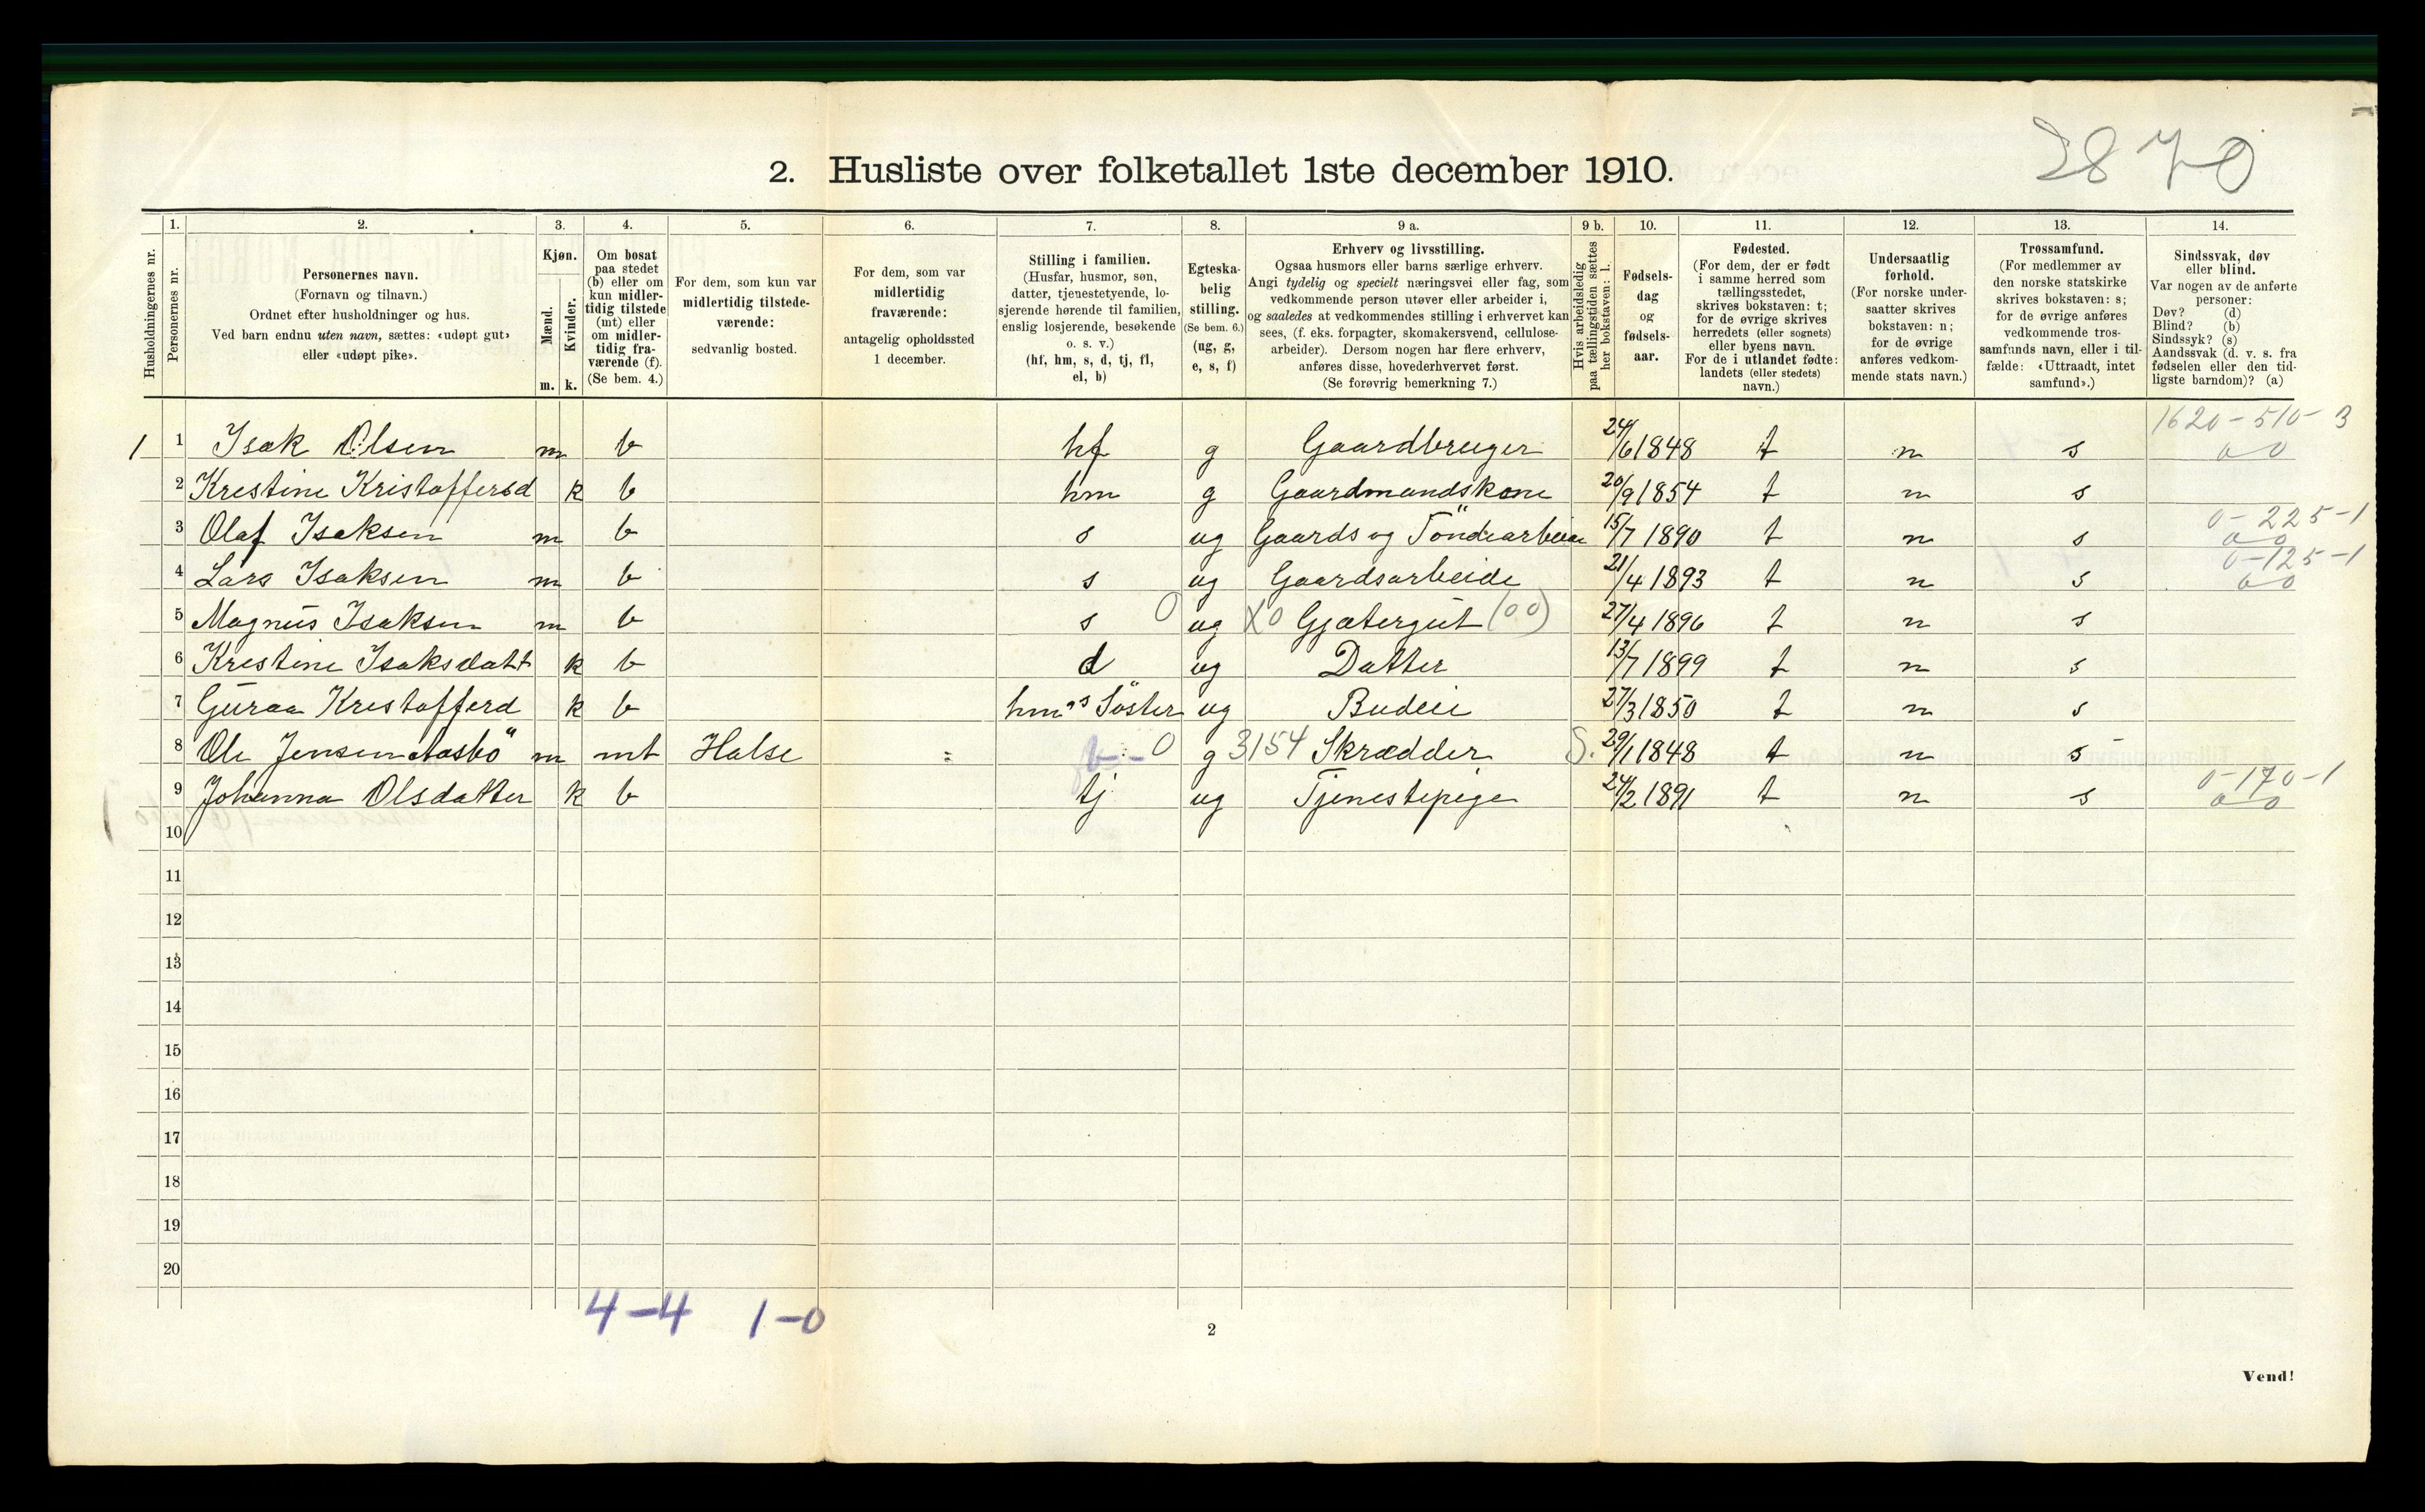 2870
2. Husliste over folketallet 1ste december 1910.
Husholdningernes nr.
1.
Personernes nr.
2.
Personernes navn.
(Fornavn og tilnavn.)
Ordnet efter husholdninger og hus.
Ved barn endnu uten navn, sættes: «udøpt gut»
eller «udøpt pike».
3.
Kjøn.
Mænd.
Kvinder.
m. k.
4.
Om bosat
paa stedet
(b) eller om
kun midler-
tidig tilstede
(mt) eller
om midler-
tidig fra-
værende (f).
(Se bem. 4.)
5.
For dem, som kun var
midlertidig tilstede-
værende:
sedvanlig bosted.
6.
For dem, som var
midlertidig
fraværende:
antagelig opholdssted
1 december.
7.
Stilling i familien.
(Husfar, husmor, søn,
datter, tjenestetyende, lo-
sjerende hørende til familien,
enslig losjerende, besøkende
o. s. v.)
(hf, hm, s, d, tj, fl,
el, b)
8.
Egteska-
belig
stilling.
(Se bem. 6.)
(ug, g,
e, s, f)
9 a.
Erhverv og livsstilling.
Ogsaa husmors eller barns særlige erhverv.
Angi tydelig og specielt næringsvei eller fag, som
vedkommende person utøver eller arbeider i,
og saaledes at vedkommendes stilling i erhvervet kan
sees, (f. eks. forpagter, skomakersvend, cellulose-
arbeider). Dersom nogen har flere erhverv,
anføres disse, hovederhvervet først.
(Se forøvrig bemerkning 7.)
9 b.
Hvis arbeidsledig
paa tællingstiden sættes
her bokstaven: l.
10.
Fødsels-
dag
og
fødsels-
aar.
11.
Fødested.
(For dem, der er født
i samme herred som
tællingsstedet,
skrives bokstaven: t;
for de øvrige skrives
herredets (eller sognets)
eller byens navn.
For de i utlandet fødte:
landets (eller stedets)
navn.)
12.
Undersaatlig
forhold.
(For norske under-
saatter skrives
bokstaven: n;
for de øvrige
anføres vedkom-
mende stats navn.)
13.
Trossamfund.
(For medlemmer av
den norske statskirke
skrives bokstaven: s;
for de øvrige anføres
vedkommende tros-
samfunds navn, eller i til-
fælde: «Uttraadt, intet
samfund».)
14.
Sindssvak, døv
eller blind.
Var nogen av de anførte
personer:
Døv? (d)
Blind? (b)
Sindssyk? (s)
Aandssvak (d. v. s. fra
fødselen eller den tid-
ligste barndom)? (a)
1620-510-3
1 1 Isak Olsen m b hf g Gaardbruger 24/6 1848 t n s 0 0
2 Krestine Kristoffersd k b hm g Gaardmandskone 20/9 1854 t n s
0-225-1
3 Olaf Isaksen m b s ug Gaards og Töndearbeide 15/7 1890 t n s 0 0
0-125-1
4 Lars Isaksen m b s ug Gaardsarbeide 21/4 1893 t n s 0 0
5 Magnus Isaksen m b s 0 ug X0 Gjætergut (00) 27/4 1896 t n s
6 Krestine Isaksdatt k b d ug Datter 13/7 1899 t n s
7 Guraa Kristofferd k b hm's Söster ug Budeie 27/3 1850 t n s
8 Ole Jensen Aasbö m mt Halse b 0 g 3154 Skrædder S. 29/1 1848 t n s
0-170-1
9 Johanna Olsdatter k b tj ug Tjenestepige 24/2 1891 t n s 0 0
10
11
12
13
14
15
16
17
18
19
20
4-4 1-0
2
Vend!